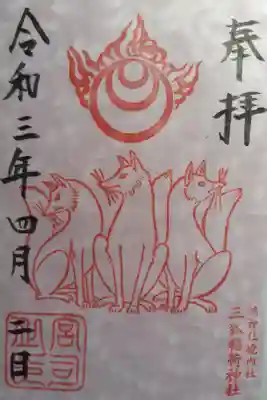 奉拝
三狐稲荷神社
令和三年四月
二日
宮司之印